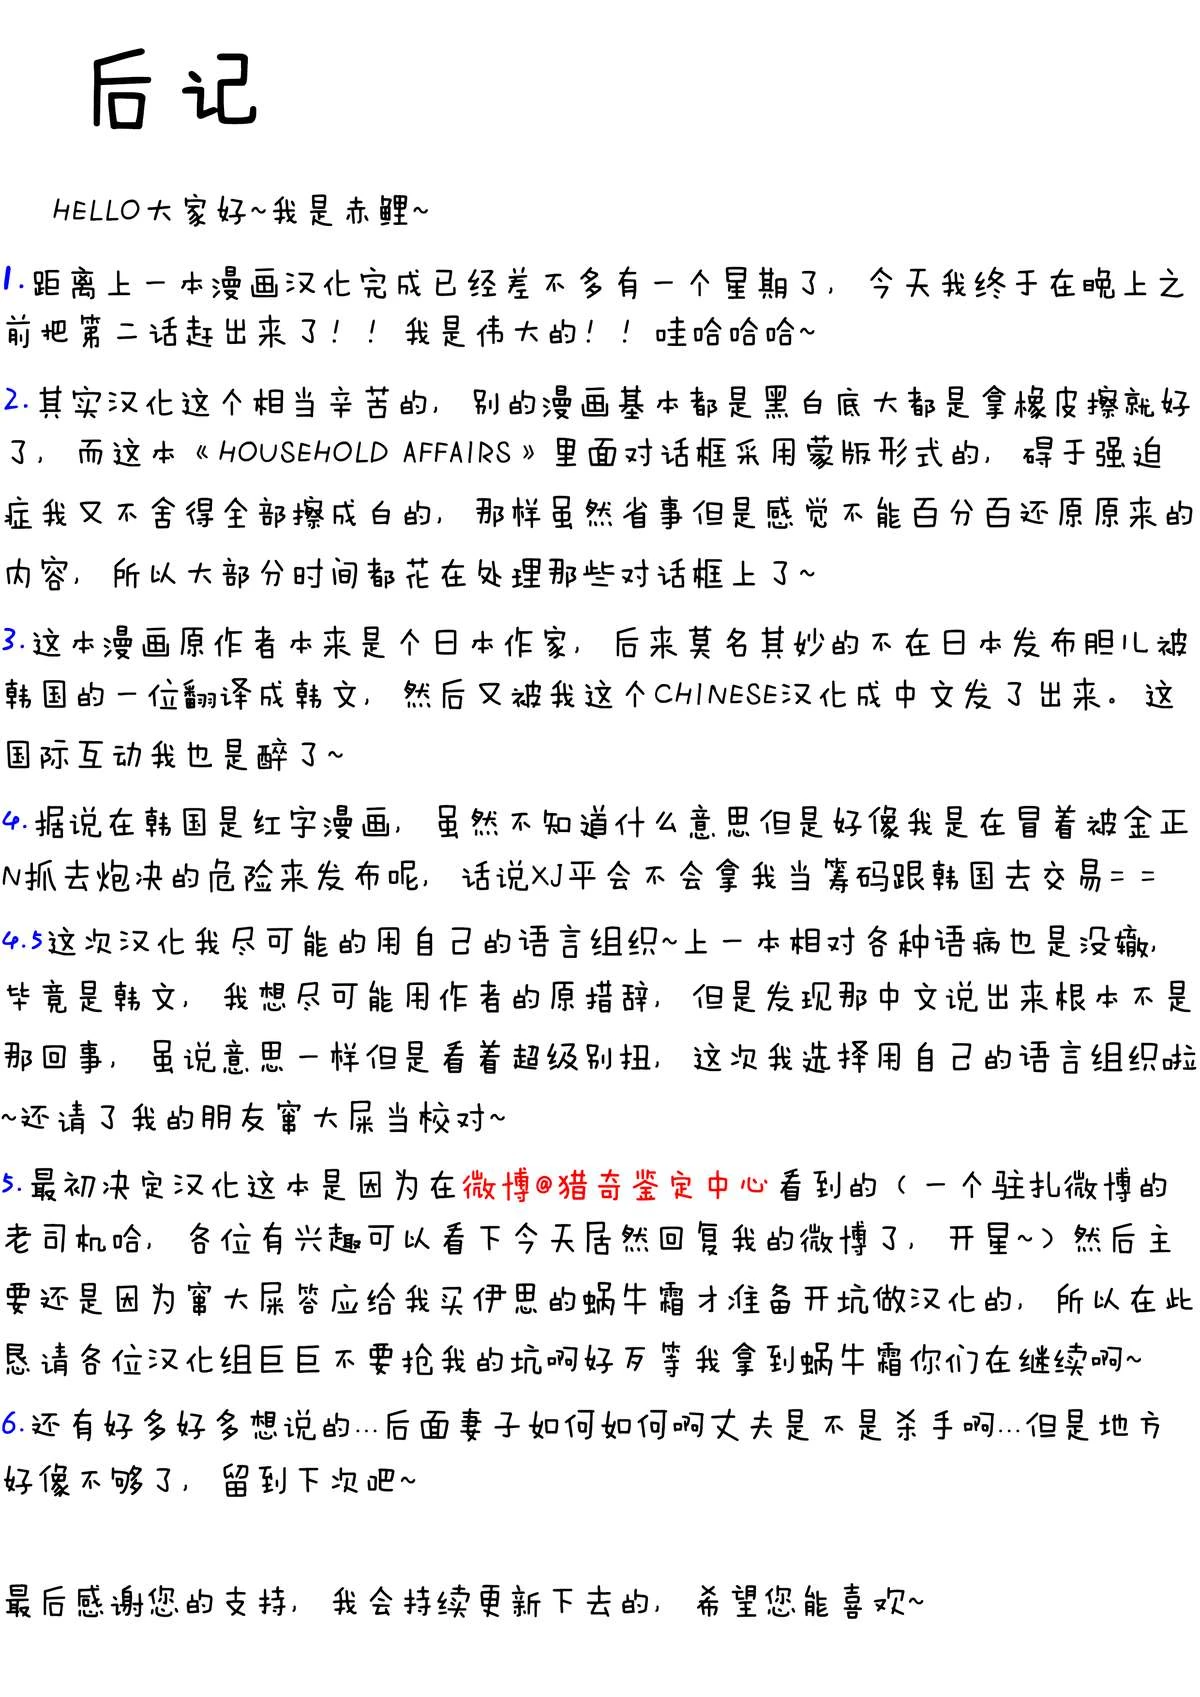 后记
HELLO大家好~我是赤鲤~
1.距离上一本漫画汉化完成已经差不多有一个星期了，今天我终于在晚上之
前把第二话赶出来了！！我是伟大的！！哇哈哈哈~
2.其实汉化这个相当辛苦的，别的漫画基本都是黑白底大都是拿橡皮擦就好
了，而这本《HOUSEHOLD AFFAIRS》里面对话框采用蒙版形式的，碍于强迫
症我又不舍得全部擦成白的，那样虽然省事但是感觉不能百分百还原原来的
内容，所以大部分时间都花在处理那些对话框上了~
3.这本漫画原作者本来是个日本作家，后来莫名其妙的不在日本发布胆儿被
韩国的一位翻译成韩文，然后又被我这个CHINESE汉化成中文发了出来。这
国际互动我也是醉了~
4.据说在韩国是红字漫画，虽然不知道什么意思但是好像我是在冒着被金正
N抓去炮决的危险来发布呢，话说XJ平会不会拿我当筹码跟韩国去交易= =
4.5这次汉化我尽可能的用自己的语言组织~上一本相对各种语病也是没辙，
毕竟是韩文，我想尽可能用作者的原措辞，但是发现那中文说出来根本不是
那回事，虽说意思一样但是看着超级别扭，这次我选择用自己的语言组织啦
~还请了我的朋友窜大屎当校对~
5.最初决定汉化这本是因为在微博@猎奇鉴定中心看到的（一个驻扎微博的
老司机哈，各位有兴趣可以看下今天居然回复我的微博了，开星~）然后主
要还是因为窜大屎答应给我买伊思的蜗牛霜才准备开坑做汉化的，所以在此
恳请各位汉化组巨巨不要抢我的坑啊好歹等我拿到蜗牛霜你们在继续啊~
6.还有好多好多想说的…后面妻子如何如何啊丈夫是不是杀手啊…但是地方
好像不够了，留到下次吧~
最后感谢您的支持，我会持续更新下去的，希望您能喜欢~